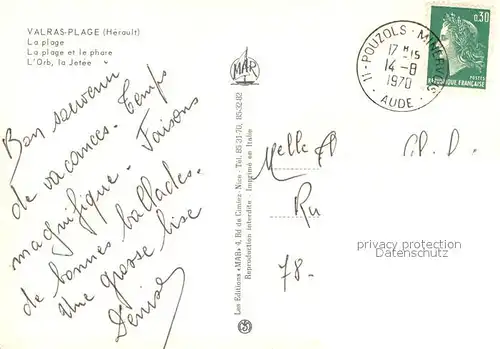 VALRAS-PLAGE (Hérault)
La plage
La plage et le phare
L'Orb, la Jetée
Bon souvenir
de vacances. Temps
magnifique. Faisons
de bonnes ballades.
Une grosse bise
Denise
MAR
Les Editions «MAR» 4, Bd de Cimiez - Nice - Tél. 85-31-70, 85-52-82
Reproduction interdite - Imprimé en Italie
11-POUZOLS-MINERVOIS
17 H 15
14-8
1970
AUDE
0,30
POSTES
REPUBLIQUE FRANÇAISE
Melle
Ru
78-
privacy protection
Datenschutz